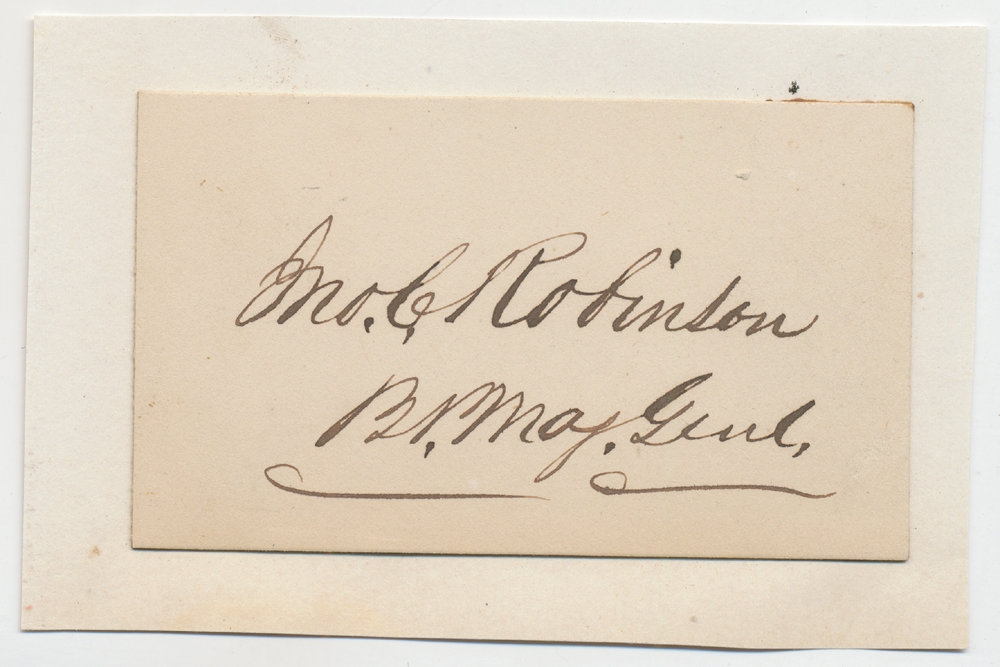 Jno. C. Robinson
Bt. Maj. Genl.